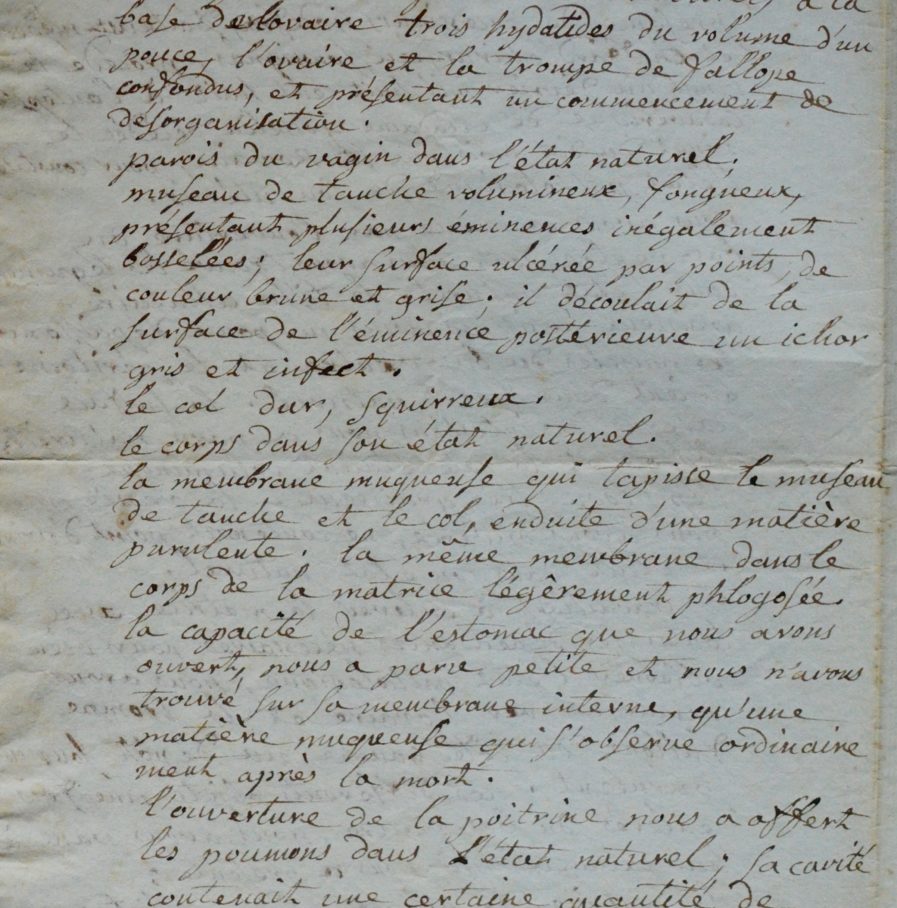 à la
base de l'ovaire trois hydatides du volume d'un
pouce, l'ovaire et la trompe de fallope
confondus, et présentant un commencement de
désorganisation.
parois du vagin dans l'état naturel.
museau de tanche volumineux, fongueux,
présentant plusieurs éminences inégalement
bosselées; leur surface ulcérée par points, de
couleur brune et grise. il découlait de la
surface de l'éminence postérieure un ichor
gris et infect.
le col dur, squirreux.
le corps dans son état naturel.
la membrane muqueuse qui tapisse le museau
de tanche et le col, enduite d'une matière
purulente. la même membrane dans le
corps de la matrice légèrement phlogosée.
la capacité de l'estomac que nous avons
ouvert, nous a paru petite et nous n'avons
trouvé sur sa membrane interne, qu'une
matière muqueuse qui s'observe ordinaire
ment après la mort.
l'ouverture de la poitrine nous a offert
les poumons dans l'état naturel; sa cavité
contenait une certaine quantité de